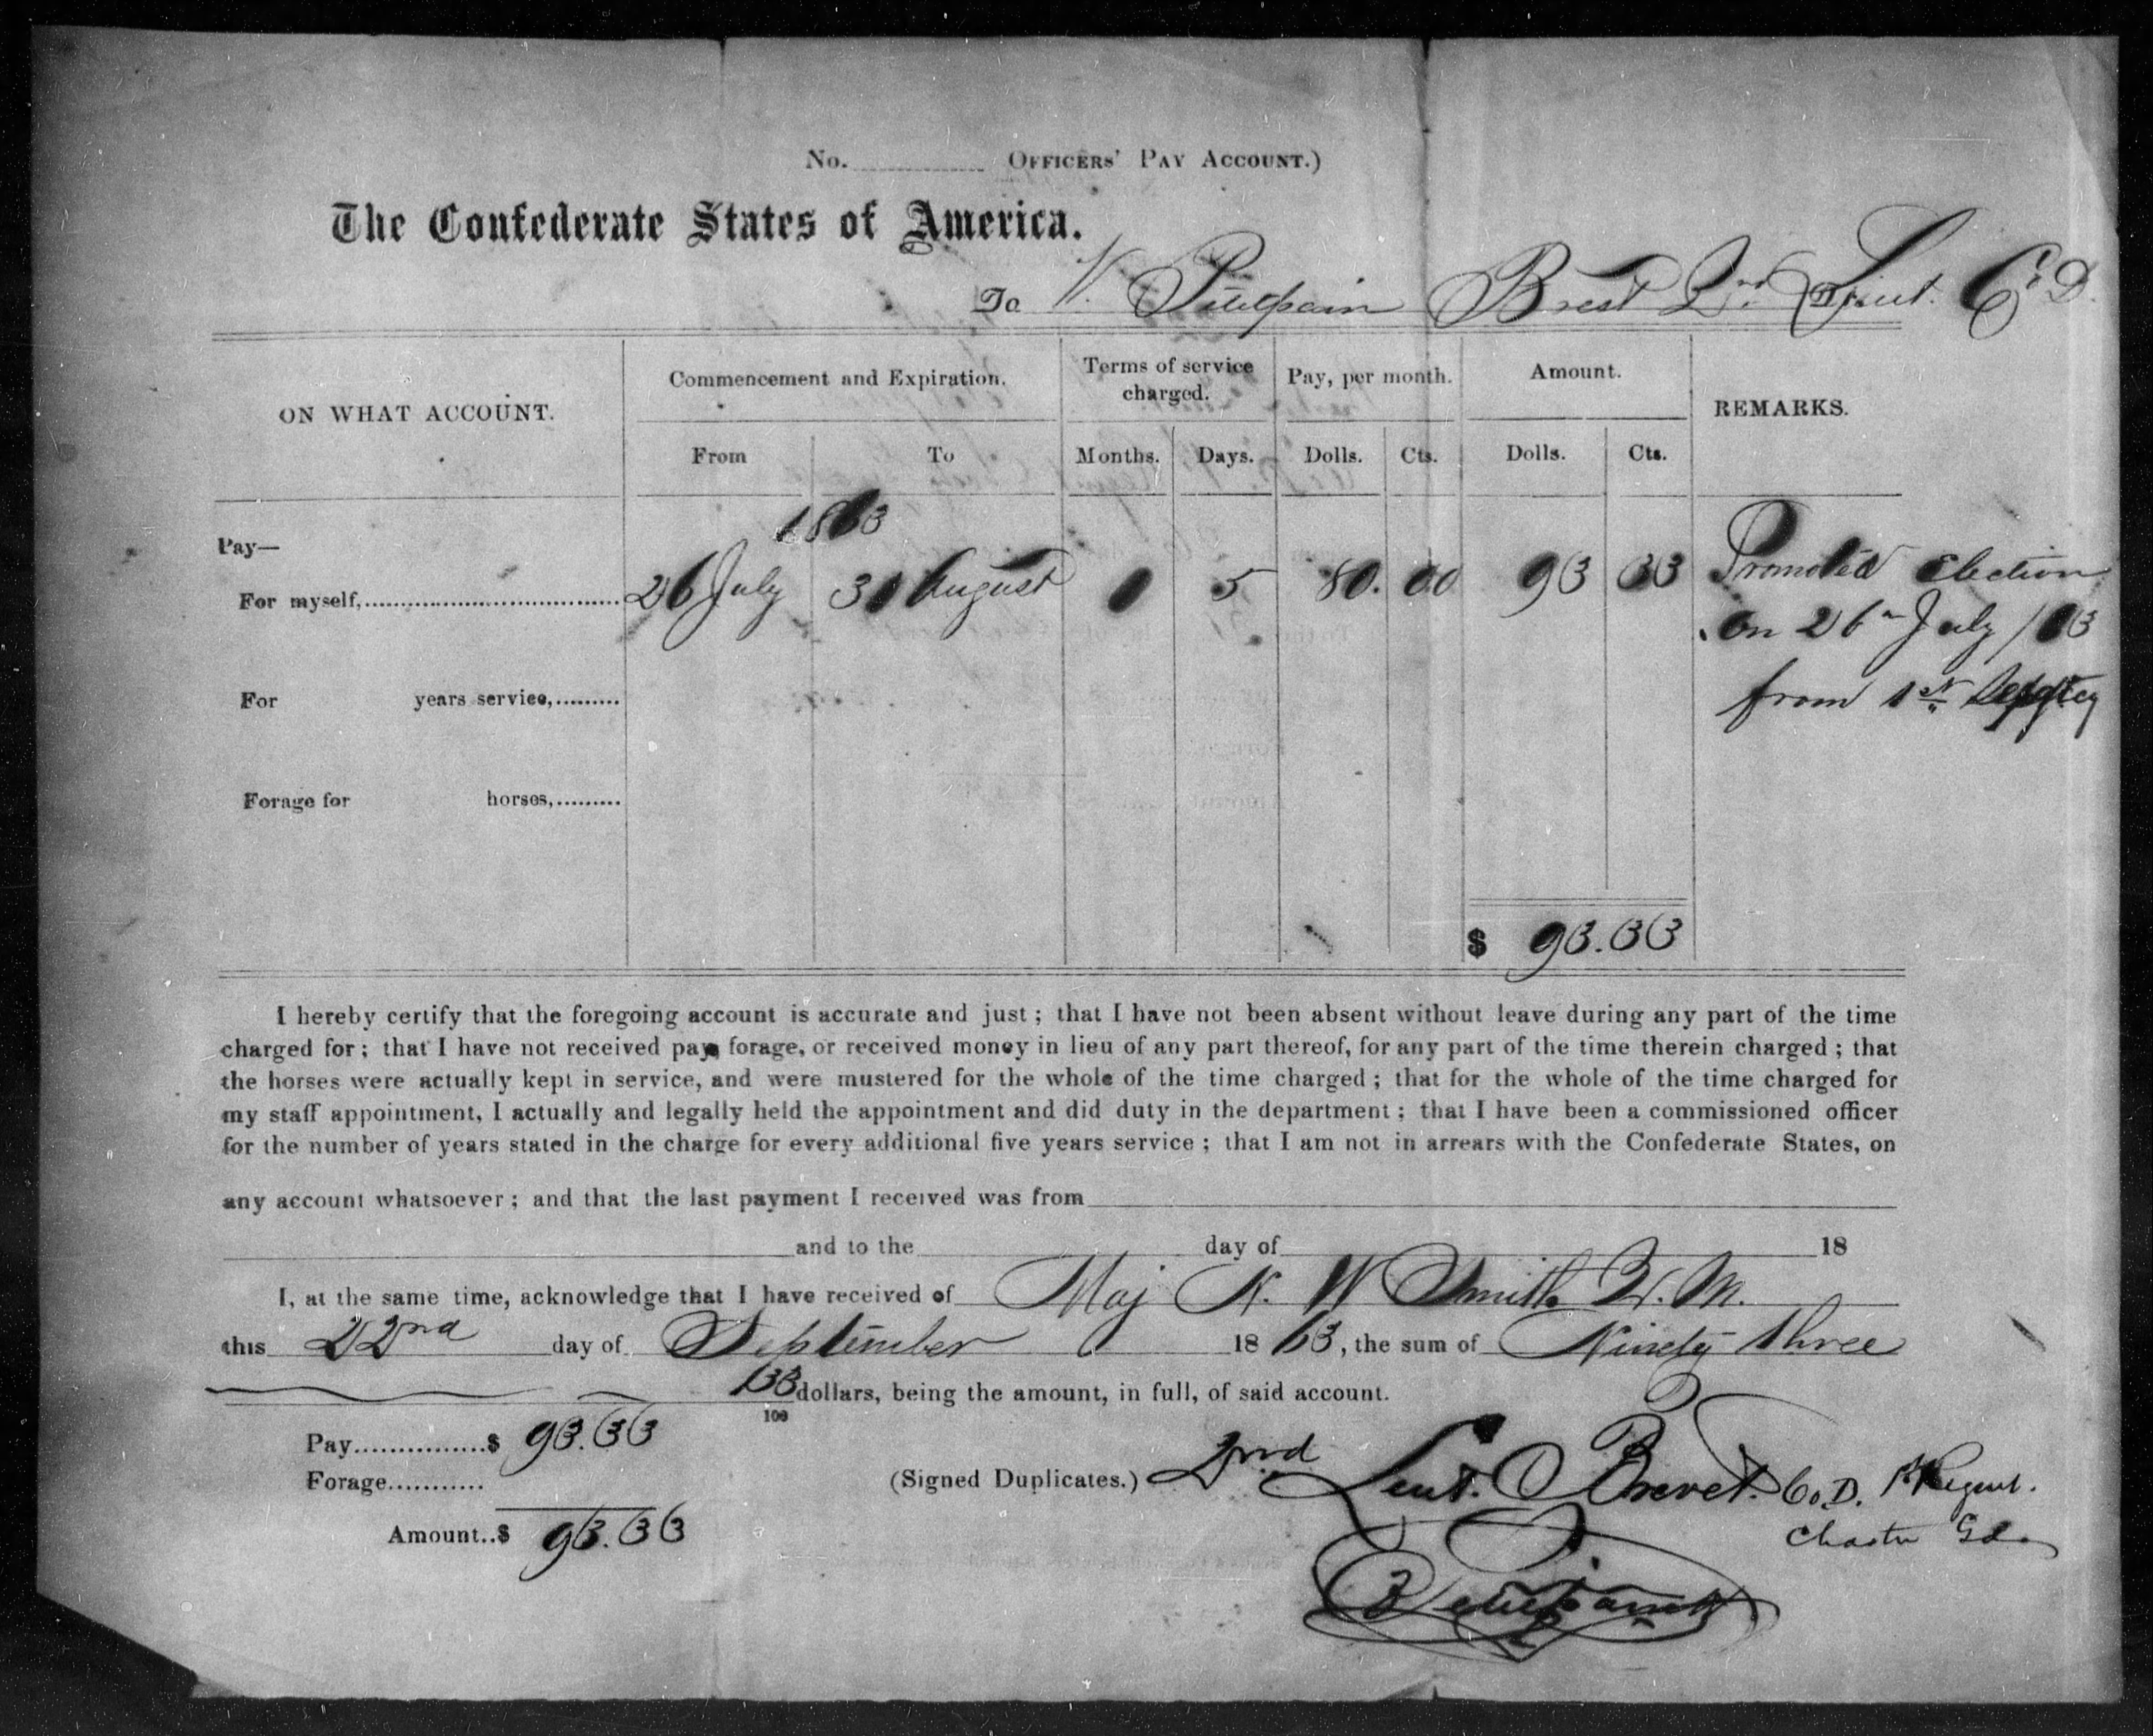 No. OFFICERS' PAY ACCOUNT.)
The Confederate States of America.
To V. Brest 2nd Lieut. Co D.
ON WHAT ACCOUNT. Commencement and Expiration. Terms of service charged. Pay, per month. Amount. REMARKS.
From To Months. Days. Dolls. Cts. Dolls. Cts.
1863
Pay—
For myself, 26 July 30 August 1 5 80. 00 93 33 Promoted Election
on 26th July /63
from 1st
For years service,
Forage for horses,
$ 93.33
I hereby certify that the foregoing account is accurate and just; that I have not been absent without leave during any part of the time
charged for; that I have not received pay forage, or received money in lieu of any part thereof, for any part of the time therein charged; that
the horses were actually kept in service, and were mustered for the whole of the time charged; that for the whole of the time charged for
my staff appointment, I actually and legally held the appointment and did duty in the department; that I have been a commissioned officer
for the number of years stated in the charge for every additional five years service; that I am not in arrears with the Confederate States, on
any account whatsoever; and that the last payment I received was from
and to the day of 18
I, at the same time, acknowledge that I have received of Maj N. W Smith Q. M.
this 22nd day of September 1863, the sum of Ninety three
33/100 dollars, being the amount, in full, of said account.
Pay $ 93.33
Forage
Amount..$ 93.33
(Signed Duplicates.) 2nd Lieut. Brevet. Co. D. 1st Regmt.